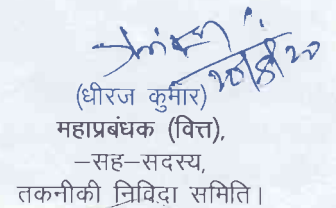 (धीरज कुमार)
महाप्रबंधक (वित्त),
–सह–सदस्य,
तकनीकी निविदा समिति।